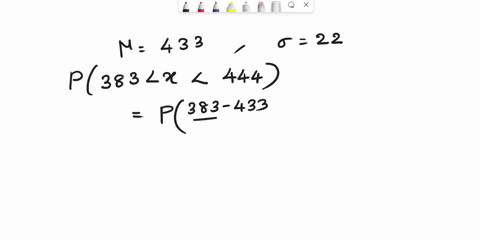 μ = 433 , σ = 22
P(383 < x < 444)
= P(383-433